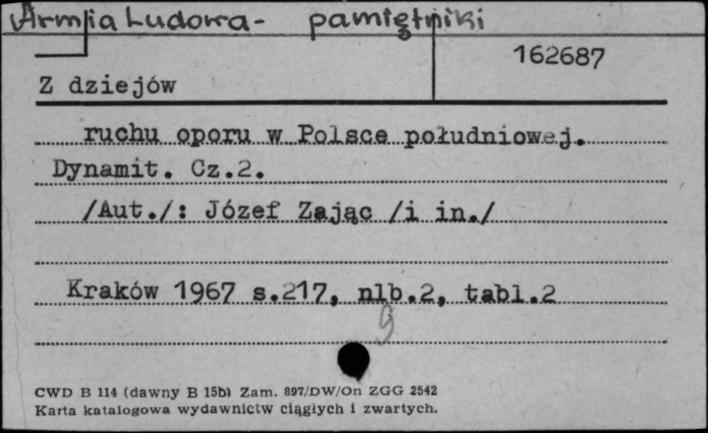 Armia Ludowa - pamiętniki
162687
Z dziejów
ruchu oporu w Polsce południowej.
Dynamit. Cz.2.
/Aut./: Józef Zając /i in./
Kraków 1967 s.217, nlb.2, tabl.2
9
CWD B 114 (dawny B 15b) Zam. 897/DW/On ZGG 2542
Karta katalogowa wydawnictw ciągłych i zwartych.